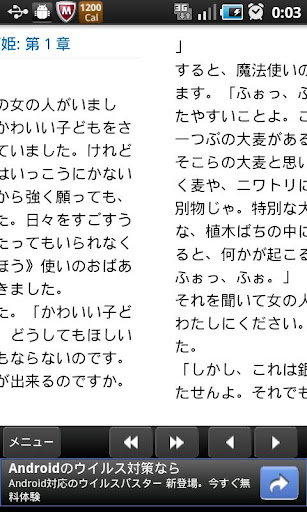 1200
Cal
3G
0:03
姫: 第 1 章
の女の人がいまし
かわいい子どもをさ
ていました。けれど
はいっこうにかない
から強く願っても、
た。日々をすごすう
たってもいられなく
ほう》使いのおばあ
きました。
た。「かわいい子ど
、どうしてもほしい
もならないのです。
が出来るのですか。
」
すると、魔法使いの
ます。「ふぉっ、ふ
たやすいことよ。こ
一つぶの大麦がある
そこらの大麦と思い
く麦や、ニワトリに
別物じゃ。特別な大
な、植木ばちの中に
ると、何かが起こる
ふぉっ、ふぉ。」
それを聞いて女の人
わたしにください。
た。
「しかし、これは銀
たせんよ。それでも
メニュー
Androidのウイルス対策なら
Android対応のウイルスバスター 新登場。今すぐ無
料体験